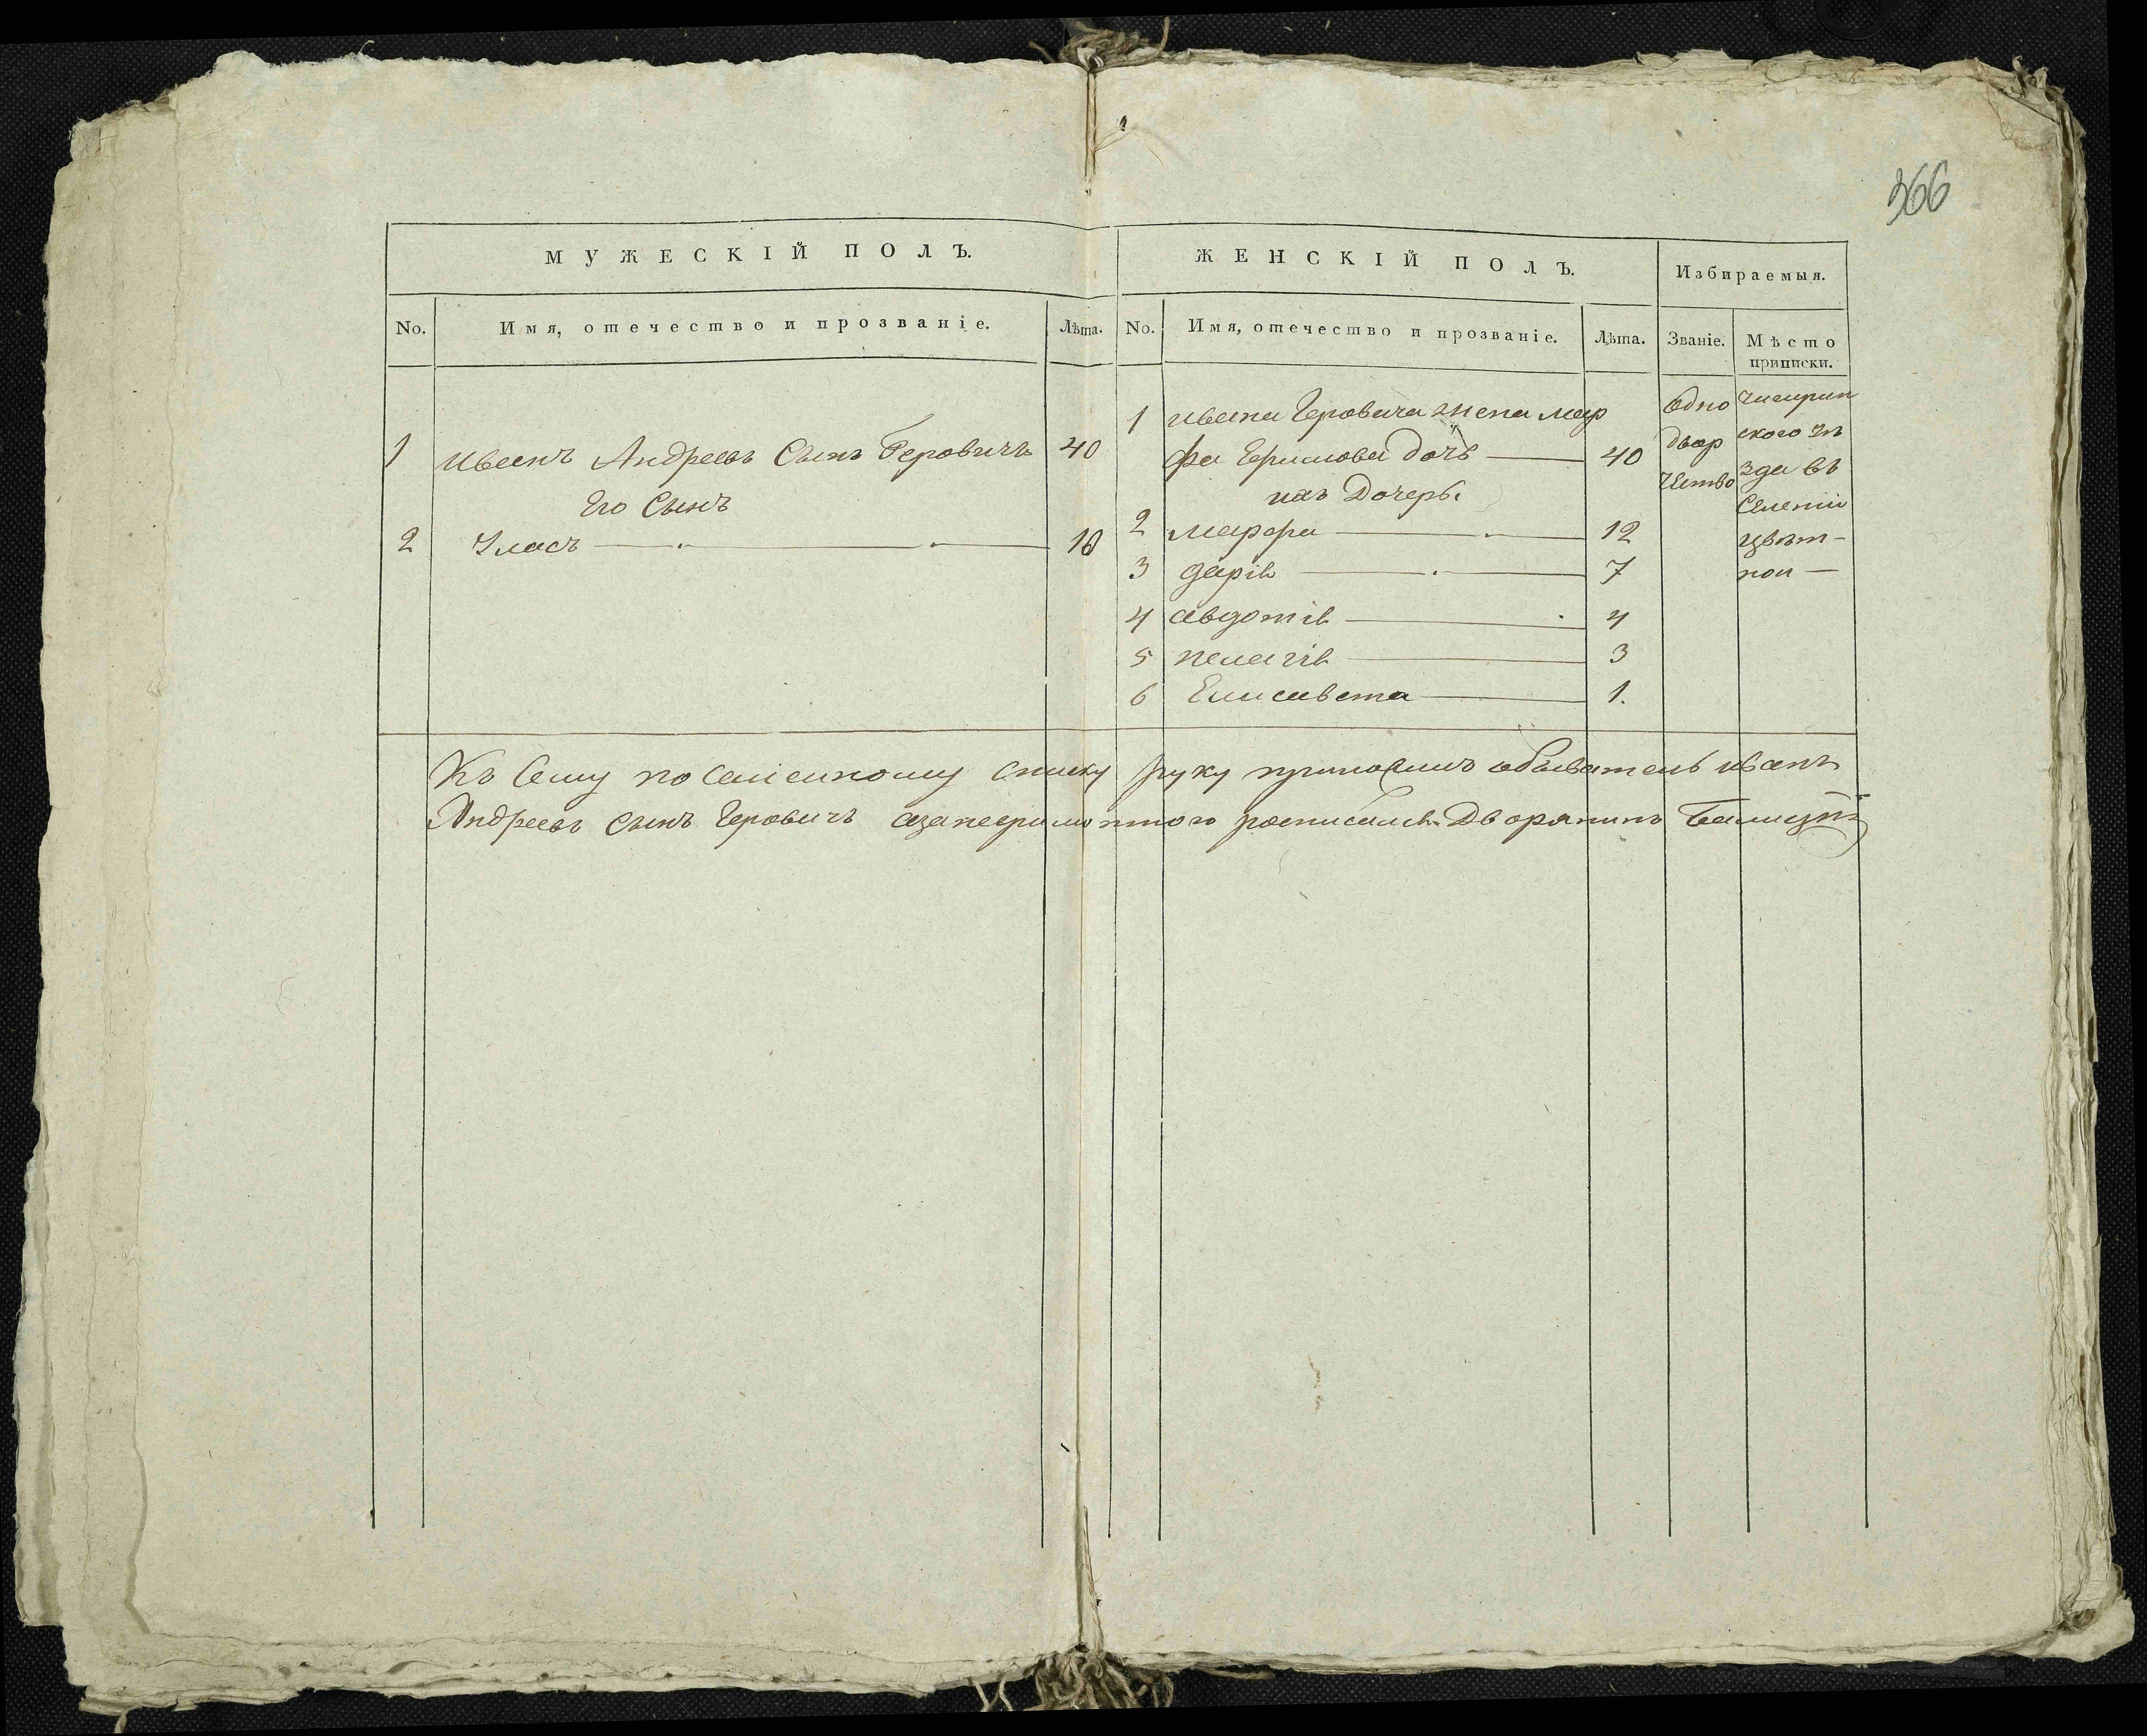 366
МУЖЕСКІЙ ПОЛЪ.
No. Имя, отечество и прозваніе. Лѣта.
1 Иванъ Андреевъ Сынъ Геровичъ 40
Его Сынъ
2 Уласъ 10
ЖЕНСКІЙ ПОЛЪ.
No. Имя, отечество и прозваніе. Лѣта.
1 Ивана Геровича жена мар
фа дочь 40
ихъ Дочери
2 марфа 12
3 дарія 7
4 авдотія 4
5 пелагія 3
6 Елисавета 1.
Избираемыя.
Званіе. Мѣсто
приписки.
Одно
двор
чество
Чигирин
ского уѣ
зда въ
Селеніи
цвѣт-
нои
Къ Сему посемейному списку руку приложилъ обыватель иванъ
Андреевъ Сынъ Геровичъ азанеграмотного росписался Дворянинъ